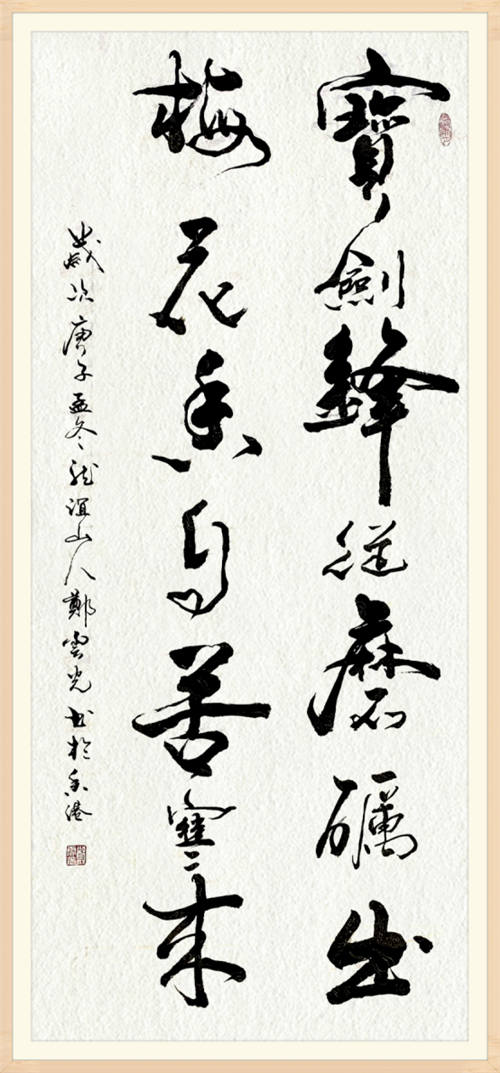 寶劍鋒從磨礪出
梅花香自苦寒來
歲次庚子孟冬龍潭山人鄭雲光書於香港